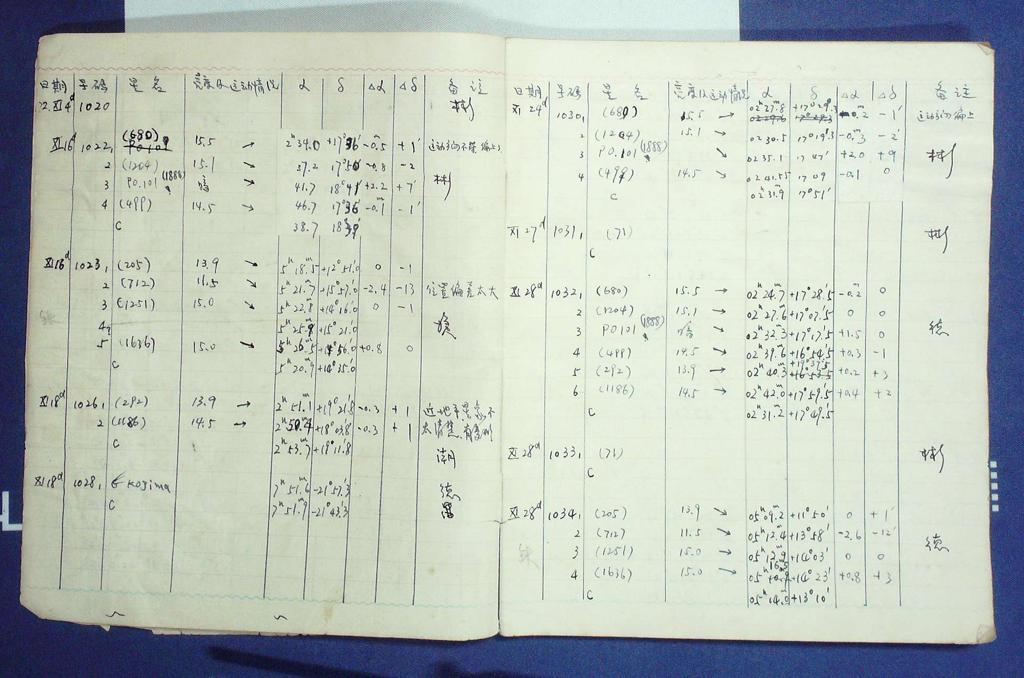 日期 号码 星名 亮度及运动情况 α δ Δα Δδ 备注
72.XI4d 1020 彬
XI16d 1022, (680) 15.5 → 2h34.0 +17°36' -0.5m +1'
2 (1204) 15.1 → 37.2 17°50' -0.8 -2
3 PO.101 (1888) 暗 41.7 18°41' +2.2 +7' 彬
4 (499) 14.5 → 46.7 17°36' -0.1 -1'
C 38.7
XI16d 1023, (205) 13.9 → 5h18.m5 +12°51.'0 0 -1
2 (712) 11.5 → 5h21.m7 +15°57.'0 -2.4 -13 位置偏差太大
3 (1251) 15.0 → 5h22.m8 +14°16.0 0 -1
4 5h25.m9 +15°21.'0
5 (1636) 15.0 → 5h26.m5 +14°56.'0 +0.8 0
C 5h20.m9 +14°35.0
XI18d 1026, (292) 13.9 → 2h51.m1 +19°21.'8 -0.3 +1
2 (1186) 14.5 → 2h50.m4 +18°03.'8 -0.3 +1
C 2h53.m7 +18°11.8
潮
XI18d 1028, Kojima 7h51.m6 -21°57.'3 德
C 7h51.m9 -21°43.'3
日期 号码 星名 亮度及运动情况 α δ Δα Δδ 备注
XI24d 1030, (680) 15.5 → 02h27.m8 +17°29.'3 -0.2 -1' 运动方向偏上
2 (1204) 15.1 → 02 30.5 17°19.'3 -0.m3 -2'
3 PO.101 (1888) 02 35.1 17°47' +2.0 +9 彬
4 (499) 14.5 → 02 41.55 17°09 -0.1 0
C 02 31.9 17°51'
XI27d 1031, (71) 彬
C
XI28d 1032, (680) 15.5 → 02h24.m7 +17°28.'5 -0.2 0
2 (1204) 15.1 → 02h27.m6 +17°07.'5 0 0
3 PO101 (1888) 暗 → 02h32.m3 +17°17.'5 +1.5 0 德
4 (499) 14.5 → 02h39.m6 +16°54.'5 +0.3 -1
5 (292) 13.9 → 02h40.m3 +19°37.'5 +0.2 +3
6 (1186) 14.5 → 02h42.m0 +17°59.'5 +0.4 +2
C 02h31.m2 +17°49.'5
XI28d 1033, (71) 彬
C
XI28d 1034, (205) 13.9 → 05h09.m2 +11°50' 0 +1'
2 (712) 11.5 → 05h12.m4 +13°58' -2.6 -12'
3 (1251) 15.0 → 05h12.m9 +14°03' 0 0 德
4 (1636) 15.0 → 05h16.m5 +14°23' +0.8 +3
C 05h14.m0 +13°10'